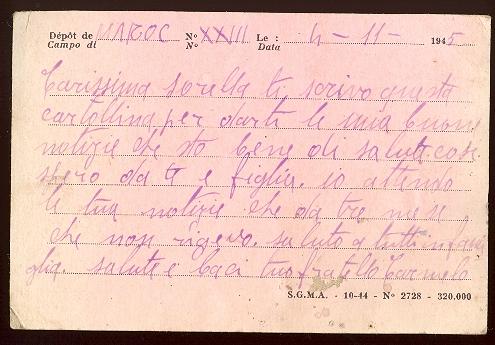 Dépôt de MAROC No XXIII Le : 4 - 11 - 1945
Campo di No Data
Carissima sorella ti scrivo questa
cartollina per darti le mia buone
notizie che sto bene di saluta cosi
spero da te e figlia. io attendo
le tua notizie che da tre mese
che nose rigevo. saluto a tutti in fami
glia. salute e baci tuo fratello Carmelo
S.G.M.A. - 10-44 - No 2728 - 320.000